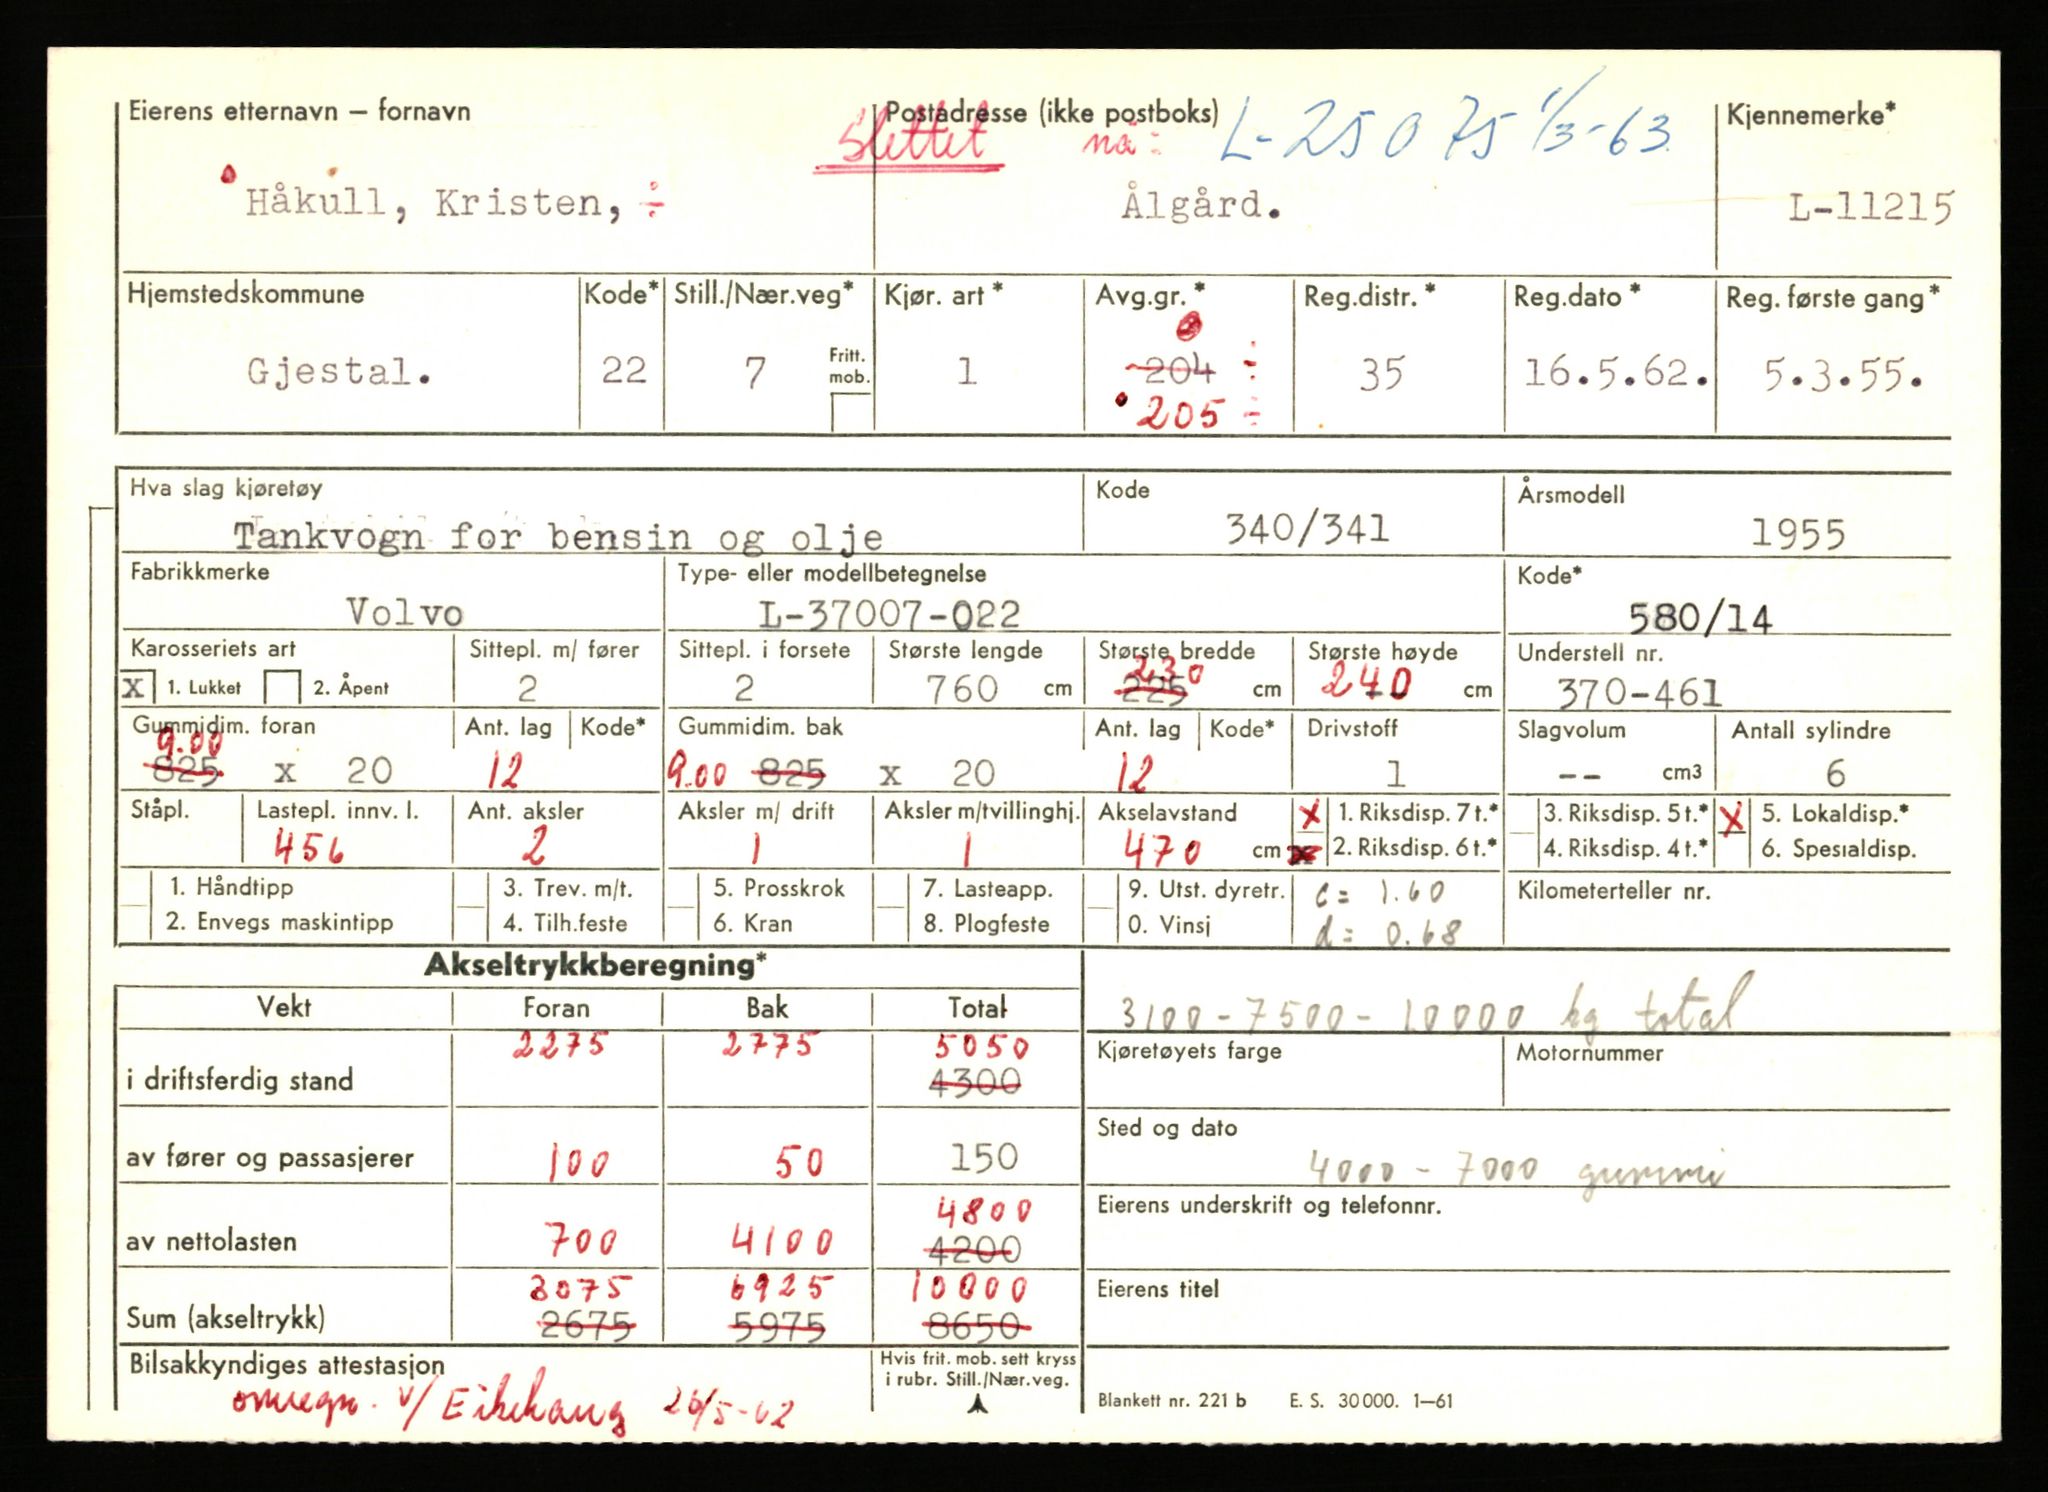 Eierens etternavn – fornavn
Slettet
Postadresse (ikke postboks)
nå: L-25075 1/3-63.
Kjennemerke*
Håkull, Kristen, ÷
Ålgård.
L-11215
Hjemstedskommune Kode* Still./Nær.veg* Kjør. art* Avg.gr.* Reg.distr.* Reg.dato* Reg. første gang*
Gjestal. 22 7 Fritt. mob. 1 204 ÷ 35 16.5.62. 5.3.55.
205 ÷
Hva slag kjøretøy Kode Årsmodell
Tankvogn for bensin og olje 340/341 1955
Fabrikkmerke Type- eller modellbetegnelse Kode*
Volvo L-37007-022 580/14
Karosseriets art Sittepl. m/ fører Sittepl. i forsete Største lengde Største bredde Største høyde Understell nr.
230
X 1. Lukket 2. Åpent 2 2 760 cm 225 cm 240 cm 370-461
Gummidim. foran Ant. lag Kode* Gummidim. bak Ant. lag Kode* Drivstoff Slagvolum Antall sylindre
9.00
825 x 20 12 9.00 825 x 20 12 1 -- cm3 6
Ståpl. Lastepl. innv. l. Ant. aksler Aksler m/ drift Aksler m/tvillinghj. Akselavstand X 1. Riksdisp. 7 t.* 3. Riksdisp. 5 t.* X 5. Lokaldisp.*
456 2 1 1 470 cm x 2. Riksdisp. 6 t.* 4. Riksdisp. 4 t.* 6. Spesialdisp.
1. Håndtipp 3. Trev. m/t. 5. Prosskrok 7. Lasteapp. 9. Utst. dyretr. c = 1.60 Kilometerteller nr.
2. Envegs maskintipp 4. Tilh.feste 6. Kran 8. Plogfeste 0. Vinsj d = 0.68
Akseltrykkberegning*
Vekt Foran Bak Total
3100-7500-10000 kg total
2275 2775 5050
Kjøretøyets farge Motornummer
i driftsferdig stand 4300
Sted og dato
av fører og passasjerer 100 50 150
4000-7000 gummi
4800
Eierens underskrift og telefonnr.
av nettolasten 700 4100 4200
3075 6925 10000
Eierens titel
Sum (akseltrykk) 2675 5975 8650
Bilsakkyndiges attestasjon
Hvis frit. mob. sett kryss
i rubr. Still./Nær.veg.
omregn. v/ Eikehaug 26/5-62
Blankett nr. 221 b E. S. 30000. 1–61